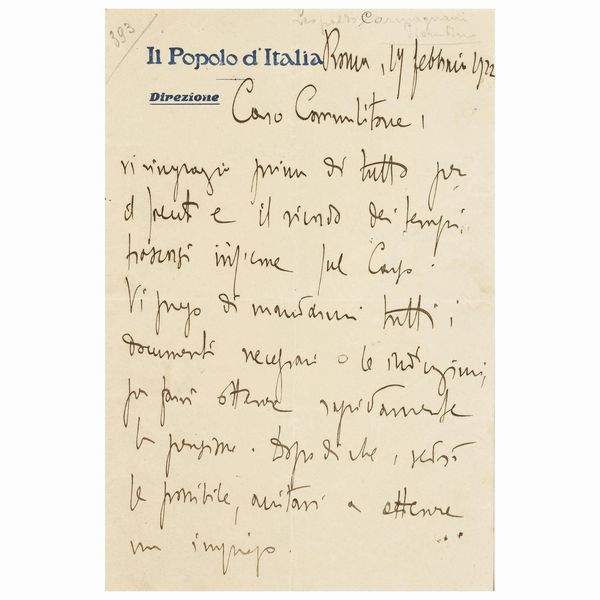 393
Campagnari
Il Popolo d'Italia
Roma, 17 febbraio 1922
Direzione
Caro Commilitone,
vi ringrazio prima di tutto per
il e il ricordo dei tempi
trascorsi insieme sul Carso.
Vi prego di mandarmi tutti i
documenti necessari o le indicazioni,
per farvi ottenere rapidamente
la pensione. Dopo di che, vedrò
se possibile, aiutarvi a ottenere
un impiego.